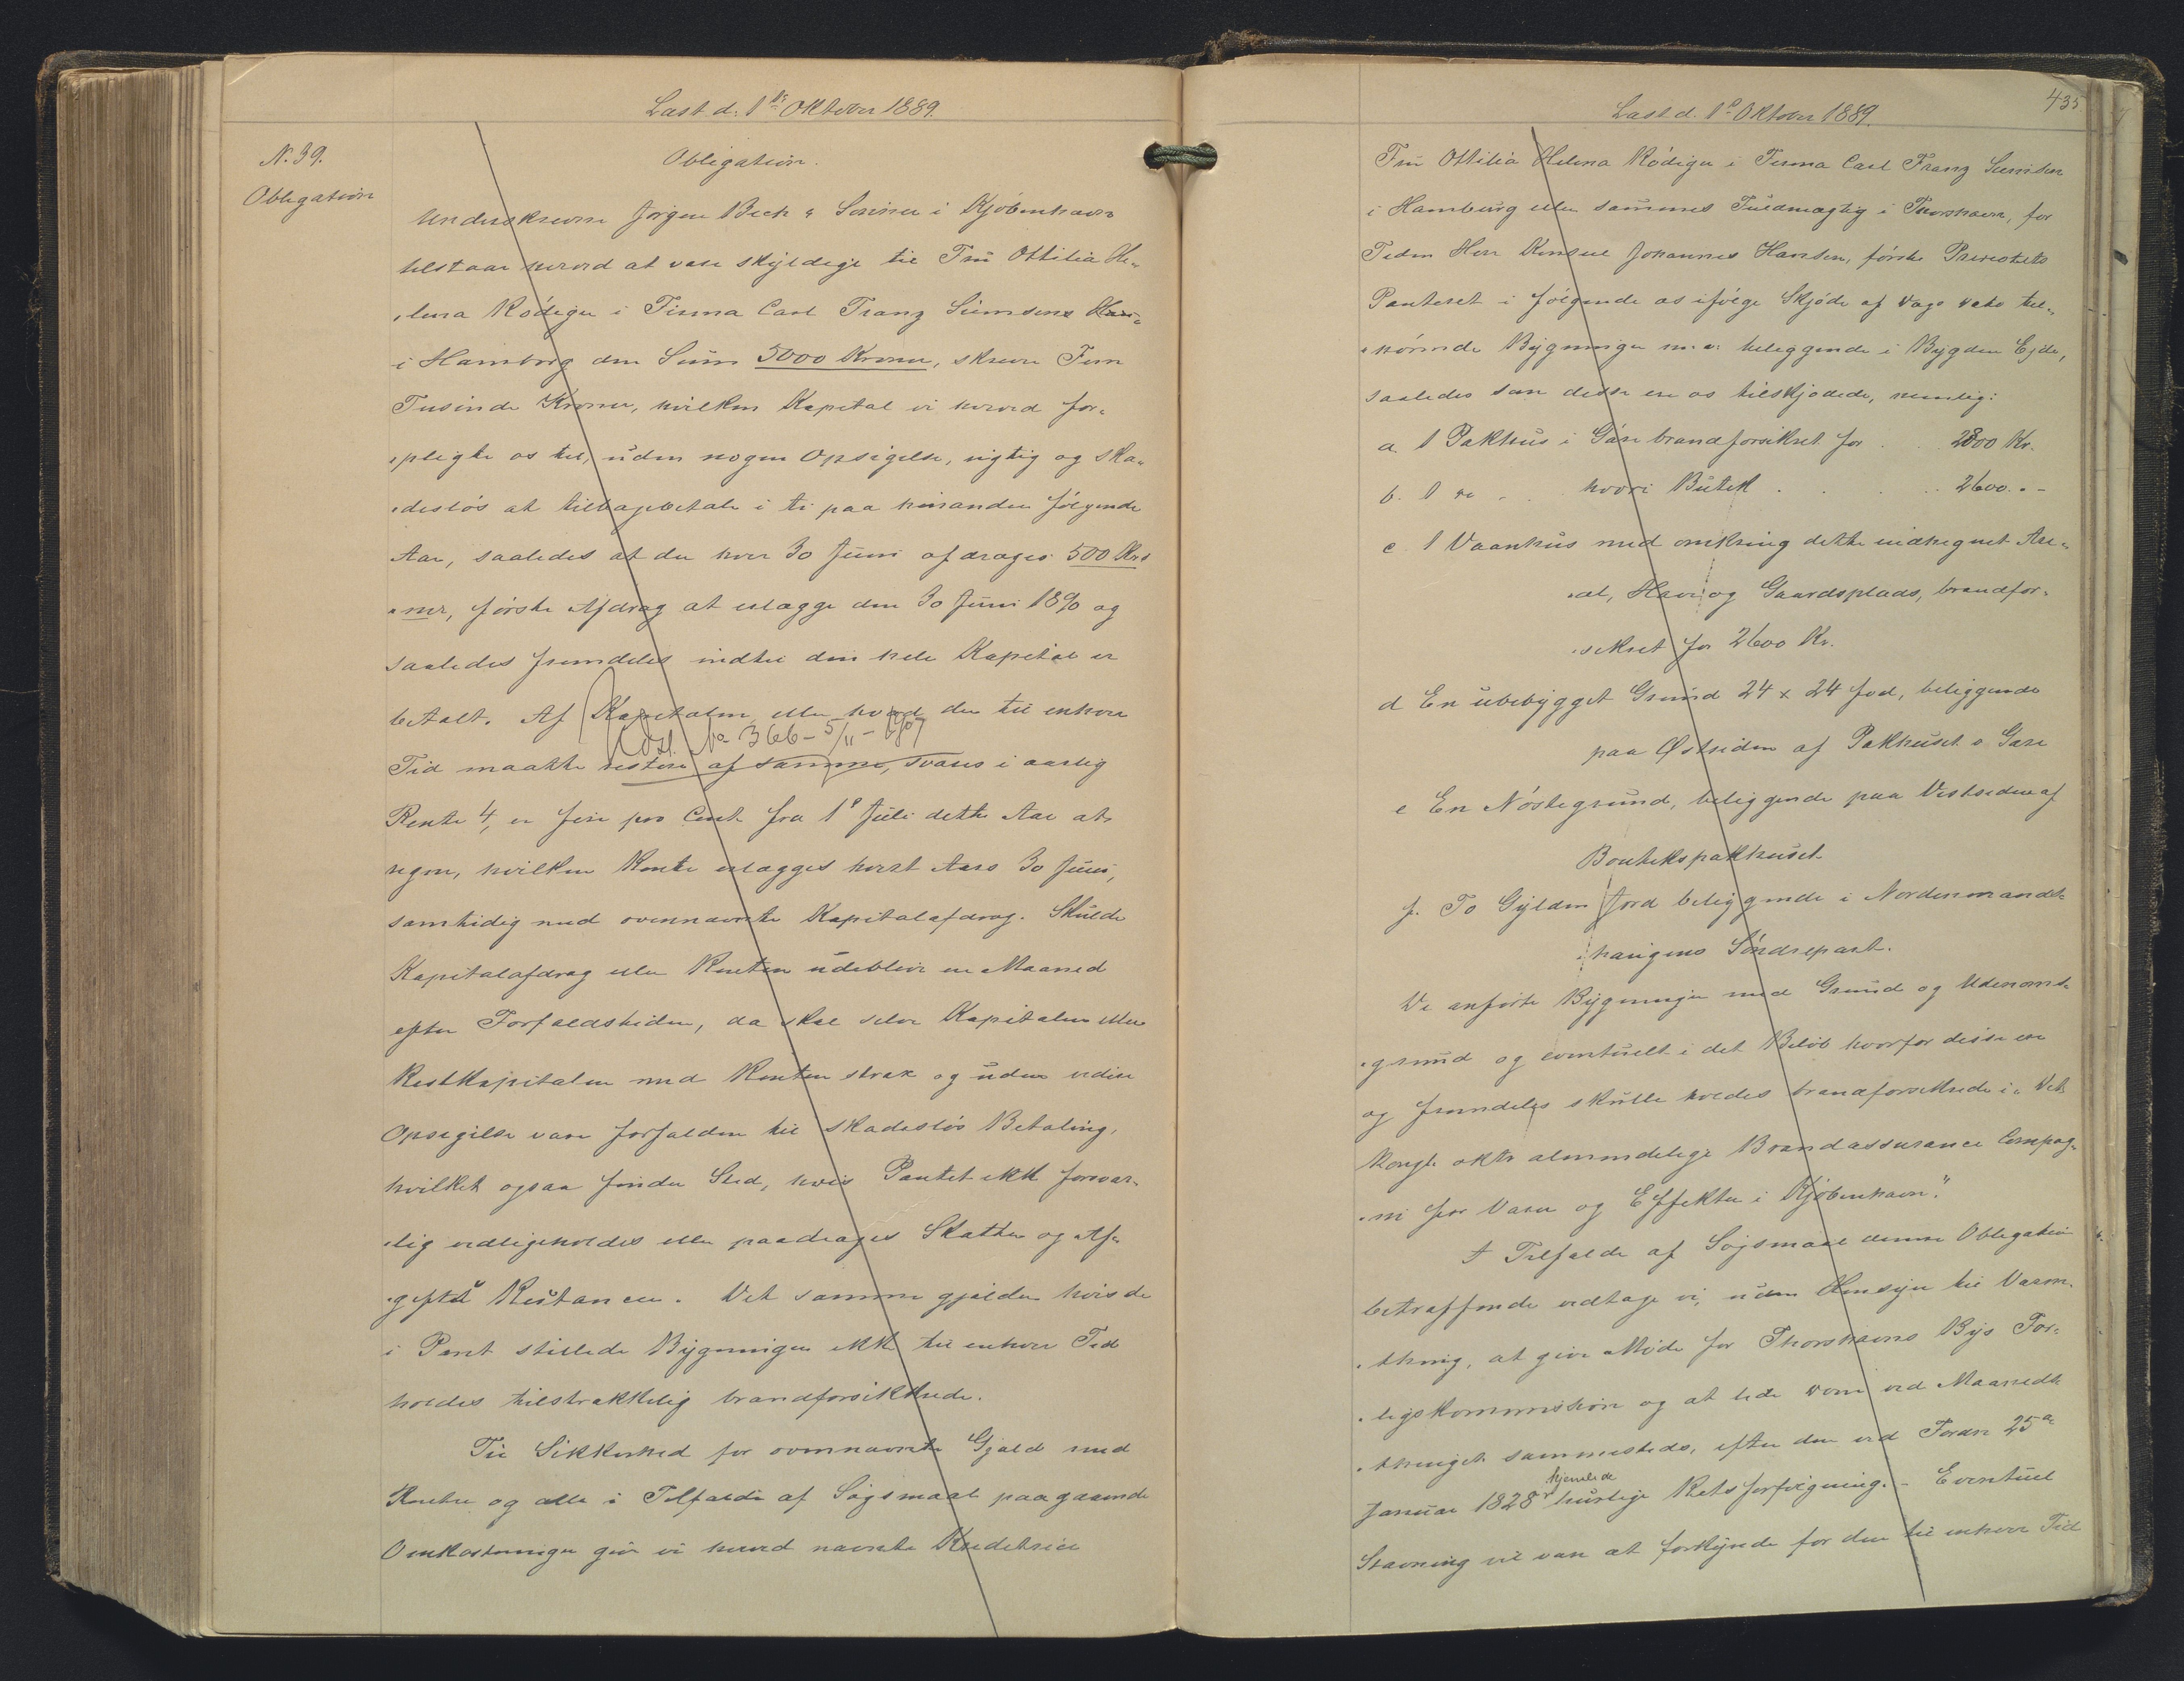 Læst d. 1ste Oktober 1889.
N. 39.
Obligation
Obligation.
Underskrevne Jørgen Bech & Sønner i Kjøbenhavn
tilstaar herved at være skyldige til Frü Ottilia He„
„lena Rödiger i Firma Carl Franz Siemsens
i Hamborg den Süm 5000 Kroner, skriver Fem
Tusinde Kroner, hvilken Kapital vi herved for„
„pligte os til, üden nogen Opsigelse, rigtig og ska„
„desløs at tilbagebetale i ti paa hinanden følgende
Aar, saaledes at der hver 30 Jüni afdrages 500 Kro
„ner, første Afdrag at erlægge den 30 Jüni 1890 og
saaledes fremdeles indtil den hele Kapital er
betalt. Af Kapitalen eller hvad der til enhver
Udsl. No 366 - 5/11 - 1907
Tid maatte restere af samme, svares i aarlig
Rente 4, er fire pro Cent fra 1e Jüli dette Aar at
regne, hvilken Rente erlægges hvert Aars 30 Jüni,
samtidig med ovennævnte Kapitalafdrag. Skülde
Kapitalafdrag eller Renten üdeblive en Maaned
efter Forfaldstiden, da skal selve Kapitalen eller
Restkapitalen med Renten strax og üden videre
Opsigelse være forfalden til skadesløs Betaling,
hvilket ogsaa finder Sted, hvis Pantet ikke forsvar„
„lig vedligeholdes eller paadrages Skatte og Af„
„gifts Restancer. Det samme gjælder hvis de
i Pant stillede Bygninger ikke til enhver Tid
holdes tilstrækkelig brandforsikkrede.
Til Sikkerhed for ovennævnte Gjæld med
Renter og alle i Tilfælde af Søgsmaal paagaaende
Omkostninger give vi herved nævnte Kreditrice
435.
Læst d. 1e Oktober 1889.
Frü Ottilia Helena Rödiger i Firma Carl Franz Siemsen
i Hambürg eller sammes Füldmægtig i Thorshavn, for
Tiden Herr Konsül Johannes Hansen, første Prioritets
Panteret i følgende os ifølge Skjøde af Dags Dato til„
„hørende Bygninger m. v. beliggende i Bygden Ejde,
saaledes som disse ere os tilskjødede, nemlig:
a. 1 Pakhüs i Gäre brandforsikret for . . 2800 Kr.
b. 1 do . . hvori Bütik . . . . 2600. „ -
c. 1 Vaanhüs med omkring dette indhegnet Are„
„al, Have og Gaardsplads, brandfor„
„sikret for 2600 Kr.
d En übebygget Gründ 24 x 24 Fod, beliggende
paa Østsiden af Pakhüset i Gare
e En Nöstegründ, beliggende paa Vestsiden af
Boutikspakhüset
f. To Gylden Jord beliggende i Nordenmands„
„haügens Søndrepart.
De anførte Bygninger med Gründ og Udenoms„
„gründ og eventüelt i det Beløb hvorfor disse ere
og fremdeles skülle holdes brandforsikrede i „Det
kongle oktr almindelige Brandassurance Compag„
„ni for Varer og Effekter i Kjøbenhavn."
I Tilfælde af Søgsmaal denne Obligation
betræffende vedtage vi, üden Hensyn til Varen„
„thing, at give Møde for Thorshavns Bys For„
„ligskommission og at lide Dom ved Maaneds„
„thinget sammesteds, efter den ved Fordn 25de
Januar 1828 hjemlede hürtige Retsforfølgning. - Eventüel
Stævning vil være at forkynde for den til enhver Tid